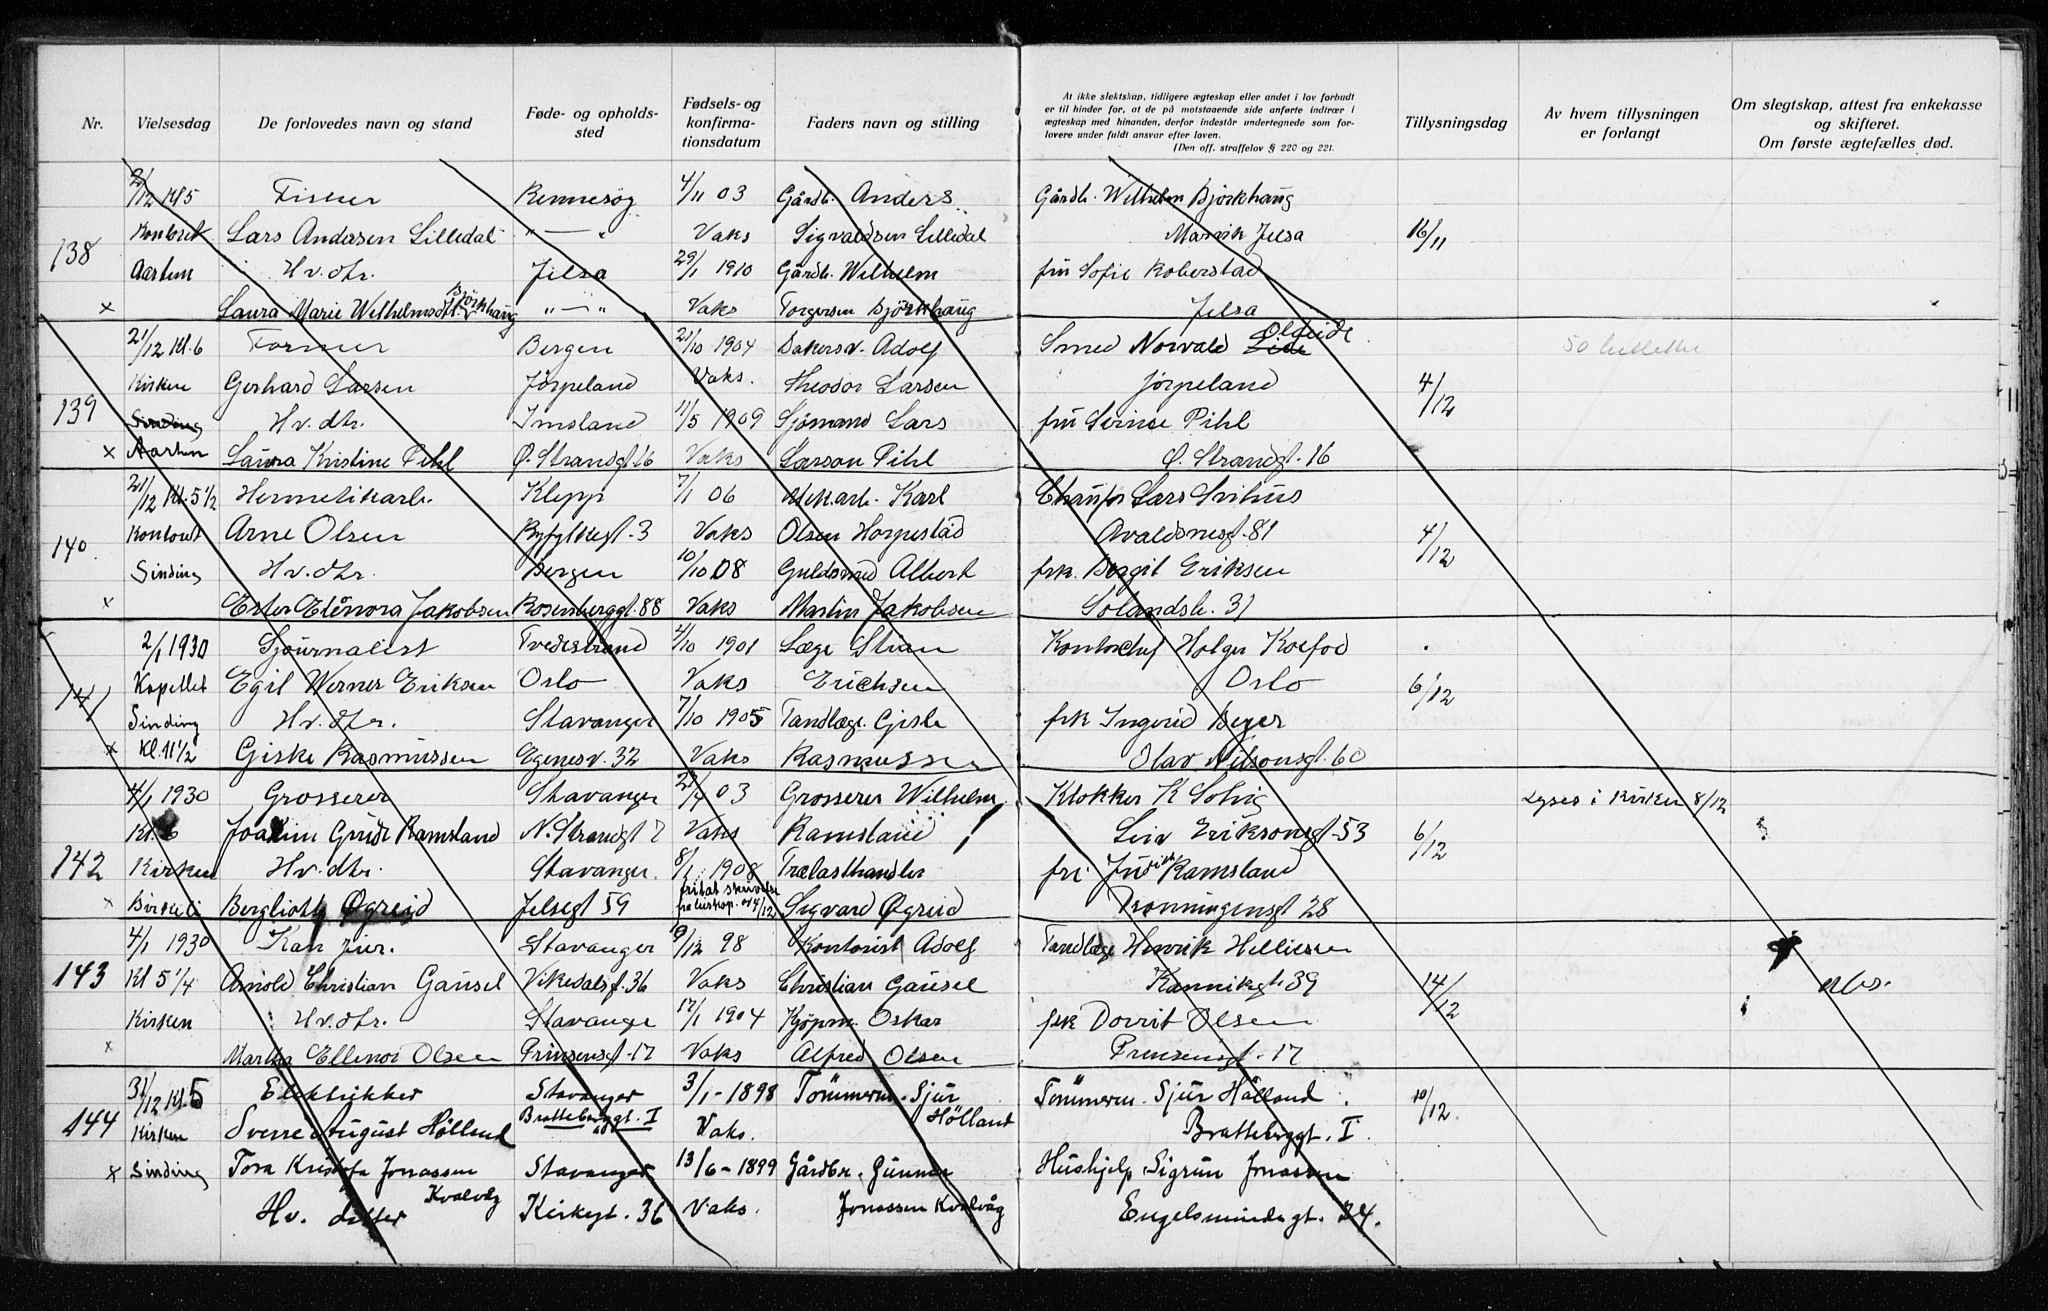 Nr.
Vielsesdag
De forlovedes navn og stand
Føde- og opholds-
sted
Fødsels- og
konfirma-
tionsdatum
Faders navn og stilling
At ikke slektskap, tidligere ægteskap eller andet i lov forbudt
er til hinder for, at de på motstaaende side anførte indtrær i
ægteskap med hinanden, derfor indestår undertegnede som for-
lovere under fuldt ansvar efter loven.
(Den off. straffelov § 220 og 221.
Tillysningsdag
Av hvem tillysningen
er forlangt
Om slegtskap, attest fra enkekasse
og skifteret.
Om første ægtefælles død.
21/12 Kl 5 Fisker Rennesøy 4/11 03 Gårdb. Anders Gårdb. Wilhelm Bjørkhaug
138 Kontoret Lars Andersen Lilledal " — " Vaks Sigvaldsen Lilledal Marvik Jelsa 16/11
Aarten Hv. dtr. Jelsa 29/1 1910 Gårdb. Wilhelm fru Sofie
x Laura Marie Wilhelmsdtr. Bjørkhaug " — " Vaks Torgersen Bjørkhaug Jelsa
21/12 Kl. 6 Former Bergen 21/10 1904 Bakersv. Adolf Smed Norvald Eide Oldeide 50
139 Kirken Gerhard Larsen Jørpeland Vaks. Theodor Larsen Jørpeland 4/12
Sinding Hv. dtr. Imsland 11/5 1909 Sjømand Lars fru Serine Pihl
x Aarten Laura Kristine Pihl Ø. Strandgt. 16 Vaks Larson Pihl Ø. Strandgt. 16
21/12 Kl. 5 1/2 Hermetikarb. Klepp 7/1 06 Mek.arb. Karl Chauffør Lars Svihus
140. Kontoret Arne Olsen Ryfylkegt. 3 Vaks Olsen Horpestad Avaldsnesgt. 81 4/12
Sinding Hv. dtr. Bergen 10/10 08 Guldsmed Albert frk. Bergit Eriksen
x Ester Elenora Jakobsen Rosenberggt. 88 Vaks Martin Jakobsen Solandsb. 31
2/1 1930 Sjournalist Tvedestrand 4/10 1901 Læge Stian Kontorchef Holger Koefod
141 Kapellet Egil Werner Eriksen Oslo Vaks Erichsen Oslo 6/12
Sinding Hv. dtr. Stavanger 7/10 1905 Tandlæge Giske frk Ingerid Beyer
x Kl. 11 1/2 Giske Rasmussen Egenesv. 32 Vaks Rasmussen Olav Nilsonsgt. 60
4/1 1930 Grosserer Stavanger 03 Grosserer Wilhelm Klokker K Solvig Lyses i Kirken 8/12
Kl. 6 Joakim Gjude Ramsland N. Strandgt 7 Vaks Ramsland Leiv Eriksonsgt. 53 6/12
142 Kirken Hv. dtr. Stavanger. 8/1 1908 Trælasthandler fru Judith Ramsland
x Birkeli Bergliot Øgreid Jelsegt 59 fritat skrivelse fra biskop. av 4/12 Sigvard Øgreid Dronningensgt 28
4/1 1930 Kan jur. Stavanger 9/12 98 Kontorist Adolf Tandlæge Henrik Helliesen
143 Kl 5 1/4 Arnold Christian Gausel Vikedalsgt. 36 Vaks Christian Gausel Kannikgt. 39 14/12 obs.
Kirken Hv. dtr. Stavanger 12/1 1904 Kjøpm. Oskar frk Dorrit Olsen
x Martha Ellenor Olsen Prinsensgt. 17 Vaks Alfred Olsen Prinsensgt. 17
31/12 Kl. 5 Elektriker Stavanger 3/1 - 1898 Tømmerm. Sjur Tømmerm. Sjur Hølland. 10/12.
144 Kirken Sverre August Hølland Brattebergt. I Vaks. Hølland Brattebergt. I.
x Sinding Tora Kristofa Jonassen Stavanger 13/6 - 1899 Gårdbr. Gunnar Hushjelp Sigrun Jonassen
Kvalvåg
Hv. datter Kirkegt. 36 Vaks. Jonassen Kvalvåg Engelsmindegt. 34.